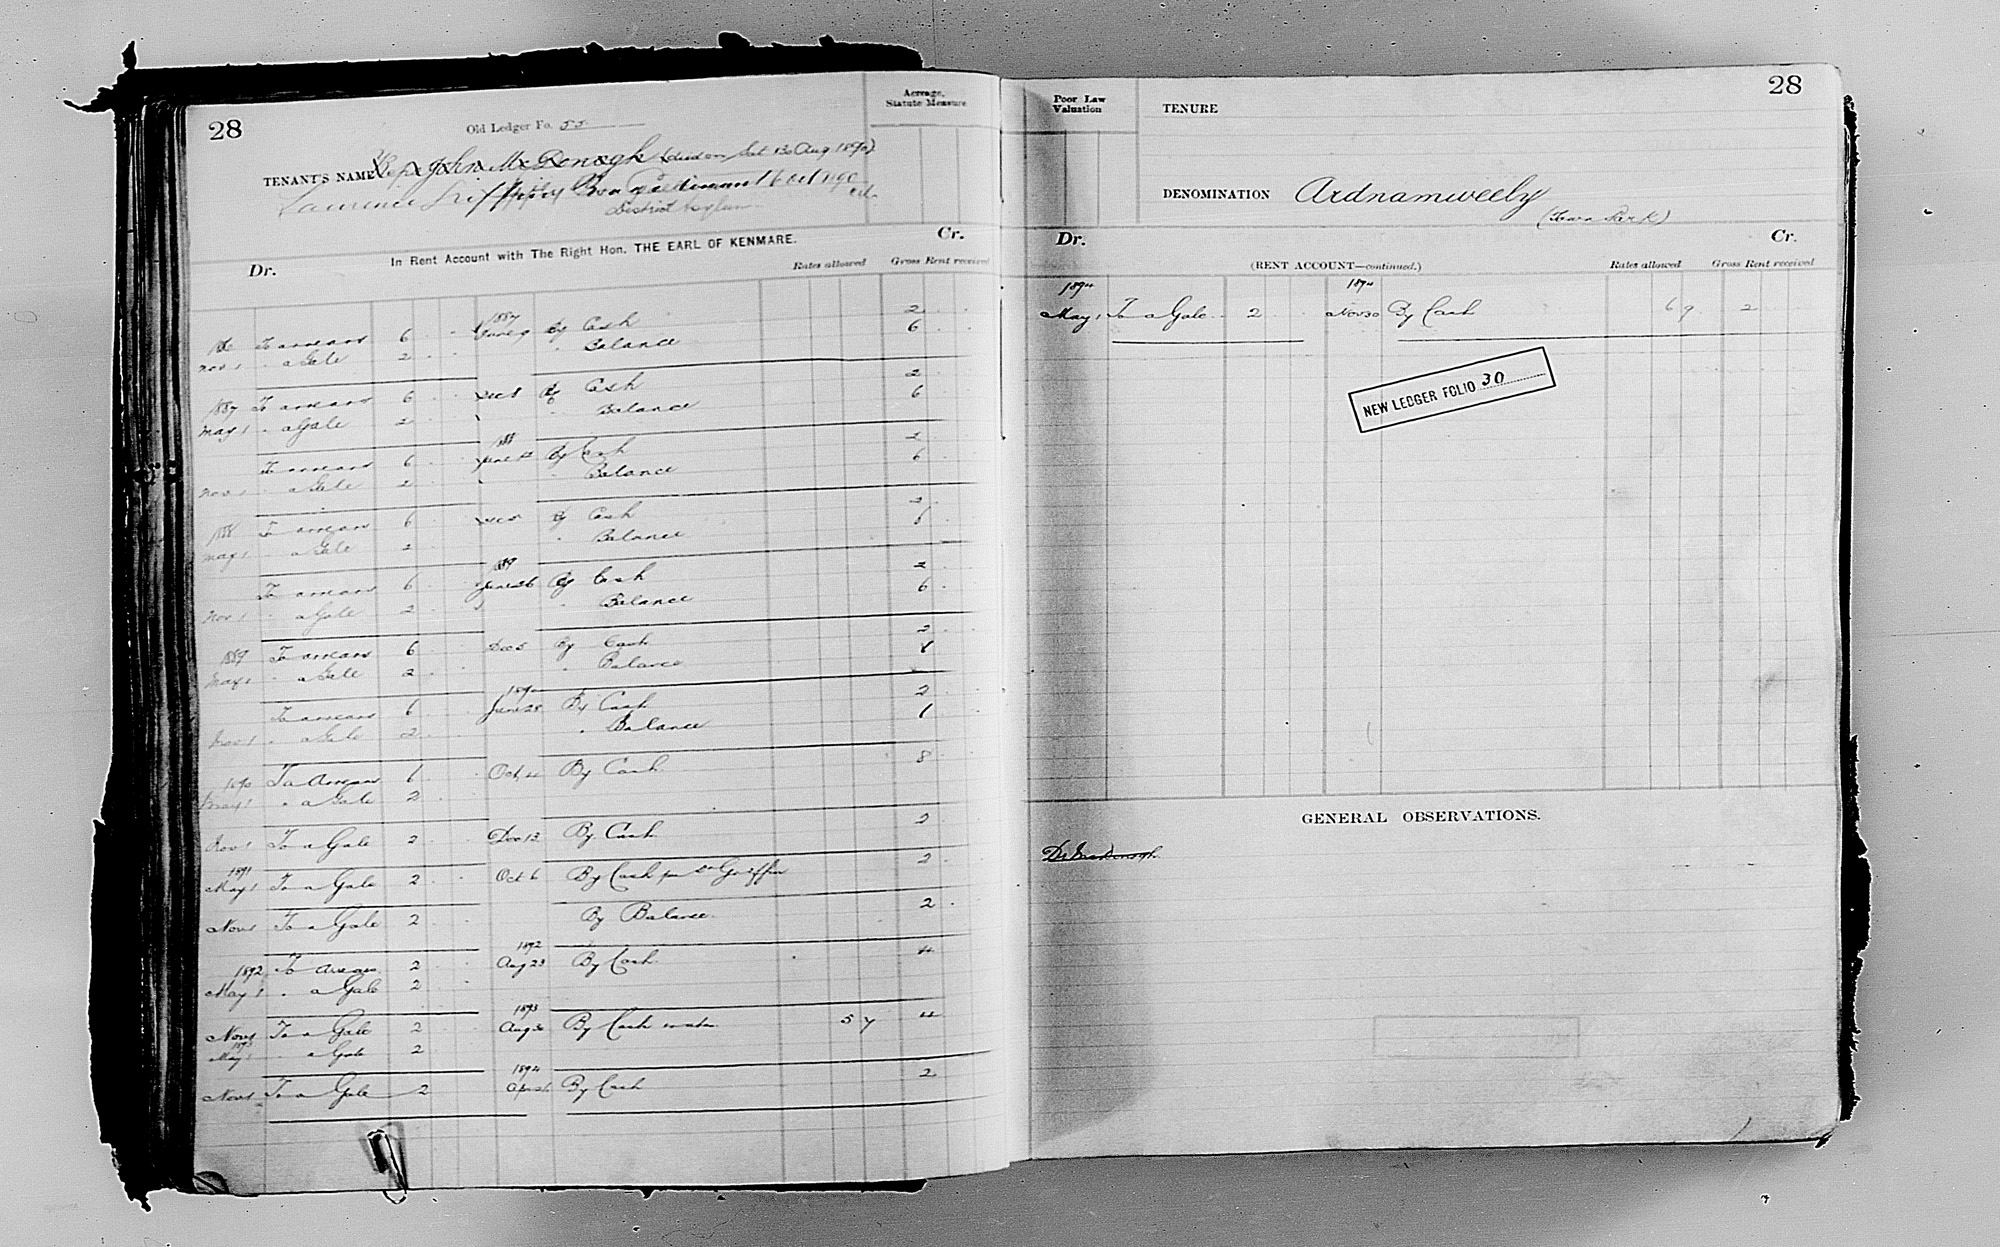 28
Old Ledger Fo. 55
Acreage,
Statute Measure
TENANT'S NAME Reps John McDonogh (died on Sat 13 Aug 1890)
Laurence Griffin
District Asylum
In Rent Account with The Right Hon. THE EARL OF KENMARE.
Dr. Cr.
Rates allowed Gross Rent received
1887
To arrears 6 June 9 By Cash 2
Nov 1 " a Gale 2 " Balance 6
1887 To arrears 6 Dec 8 By Cash 2
May 1 " a Gale 2 " Balance 6
1888
To arrears 6 June By Cash 2
Nov 1 " a Gale 2 Balance 6
1888 To arrears 6 Dec By Cash 2
May 1 " a Gale 2 " Balance 6
1889
To arrears 6 June 26 By Cash 2
Nov 1 " a Gale 2 " Balance 6
1889 To arrears 6 Dec 5 By Cash 2
May 1 " a Gale 2 " Balance 6
1890
To arrears 6 June 28 By Cash 2
Nov 1 " a Gale 2 " Balance 6
1890 To Arrears 6 Oct By Cash 8
May 1 " a Gale 2
Nov 1 To a Gale 2 Dec 13 By Cash 2
1891
May 1 To a Gale 2 Oct 6 By Cash per Dr Griffin 2
Nov 1 To a Gale 2 By Balance 2
1892
1892 To Arrears 2 Aug 23 By Cash 4
May 1 " a Gale 2
1893
Nov 1 To a Gale 2 Aug 30 By Cash 5 7 4
1893
May 1 " a Gale 2
1894
Nov 1 To a Gale 2 Apr By Cash 2
28
Poor Law
Valuation
TENURE
DENOMINATION Ardnamweely
(Town Park)
Dr. Cr.
(RENT ACCOUNT—continued.)
Rates allowed Gross Rent received
1894 1894
May 1 To a Gale 2 Nov 30 By Cash 6 9 2
NEW LEDGER FOLIO 30
GENERAL OBSERVATIONS.
Dr McDonogh